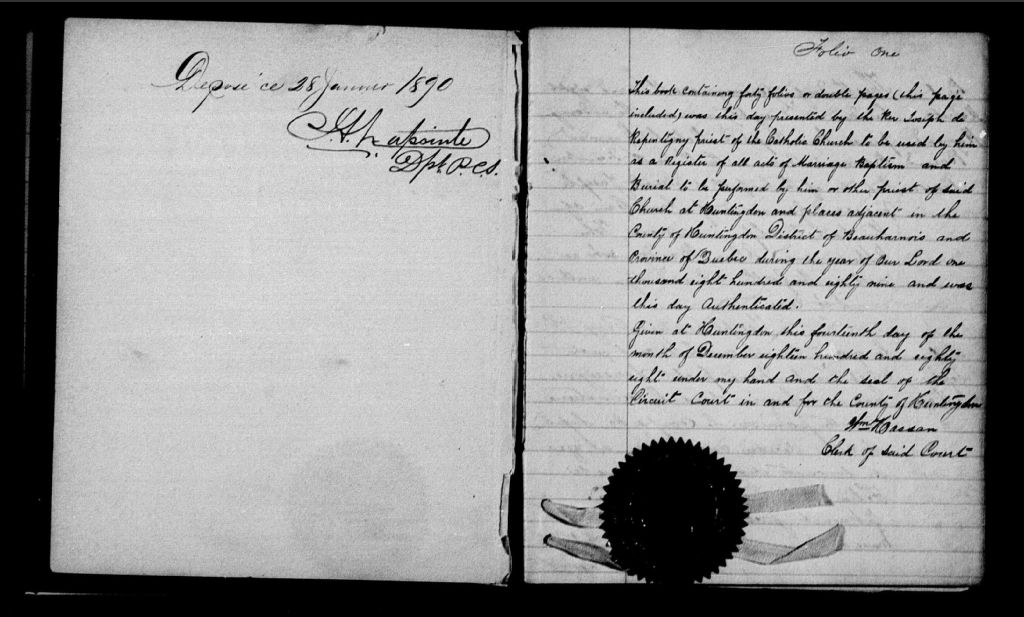 Déposé ce 28 Janvier 1890
J.H. Lapointe
Dpt. P.C.S.
Folio One
This book containing forty folios or double pages (this page
included) was this day presented by the Rev Joseph de
Repentigny priest of the Catholic Church to be used by him
as a Register of all acts of Marriage Baptism and
Burial to be performed by him or other priest of said
Church at Huntingdon and places adjacent in the
County of Huntingdon District of Beauharnois and
Province of Quebec during the year of Our Lord one
thousand eight hundred and eighty nine and was
this day Authenticated.
Given at Huntingdon this fourteenth day of the
month of December eighteen hundred and eighty
eight under my hand and the seal of the
Circuit Court in and for the County of Huntingdon
Wm Hassan
Clerk of said Court